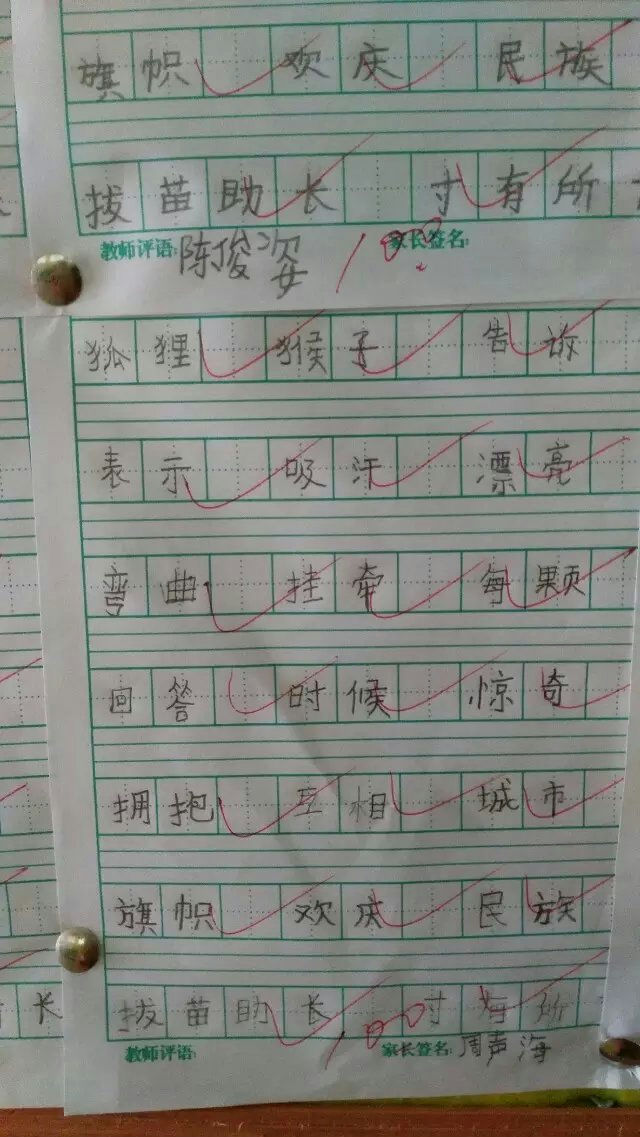 旗帜 欢庆 民族
拔苗助长 寸有所
教师评语: 陈俊姿 100 家长签名:
狐狸 猴子 告诉
表示 吸汗 漂亮
弯曲 挂牵 每颗
回答 时候 惊奇
拥抱 互相 城市
旗帜 欢庆 民族
长 拔苗助长 寸 所
100
教师评语: 家长签名: 周声海